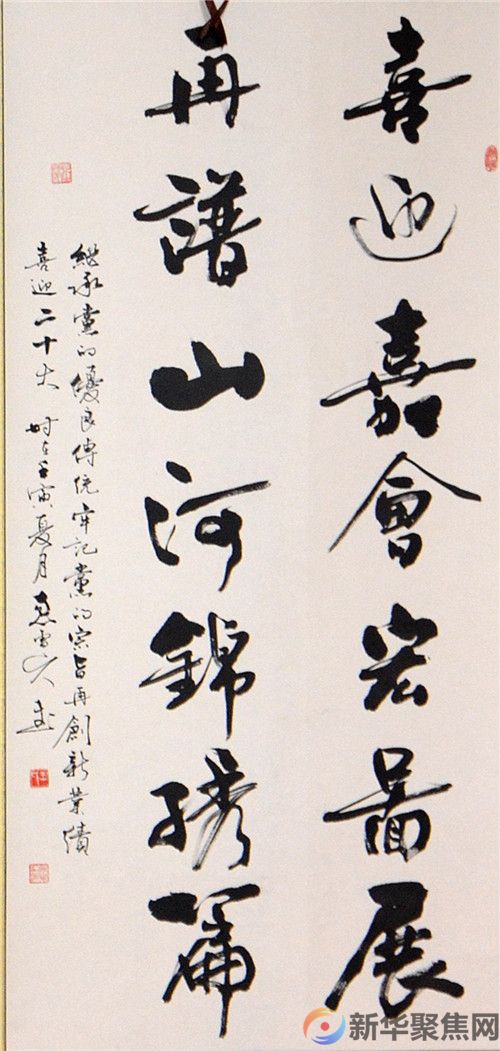 喜迎嘉會宏啚展
再譜山河錦綉篇
繼承黨的優良傳統牢記黨的宗旨再創新業績
喜迎二十大 時在壬寅夏月
新华聚焦网